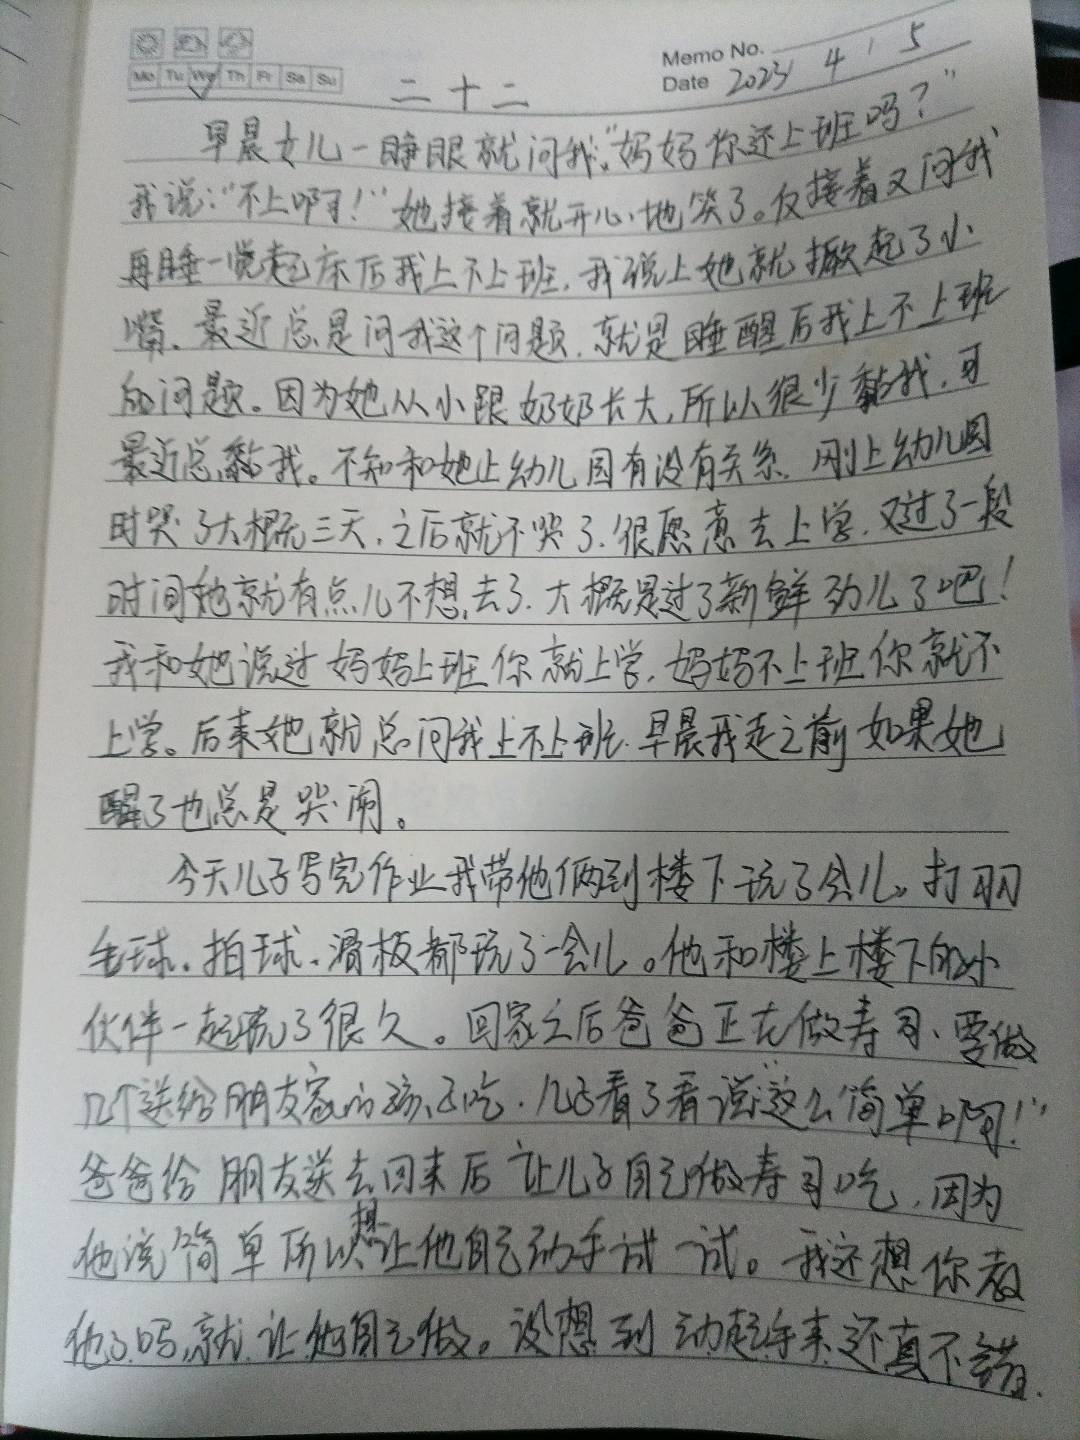 Memo No.
Mo Tu We Th Fr Sa Su
Date 2023 4 5
二十二
早晨女儿一睁眼就问我:“妈妈你还上班吗？”
我说:“不上啊！”她接着就开心地笑了。仅接着又问我
再睡一觉起床后我上不上班,我说上她就撅起了小
嘴。最近总是问我这个问题,就是睡醒后我上不上班
的问题。因为她从小跟奶奶长大,所以很少黏我,可
最近总黏我。不知和她上幼儿园有没有关系,刚上幼儿园
时哭了大概三天,之后就不哭了.很愿意去上学,又过了一段
时间她就有点儿不想去了.大概是过了新鲜劲儿了吧！
我和她说过妈妈上班你就上学,妈妈不上班你就不
上学。后来她就总问我上不上班.早晨我走之前如果她
醒了也总是哭闹。
今天儿子写完作业我带他俩到楼下玩了会儿。打羽
毛球、拍球、滑板都玩了一会儿。他和楼上楼下的小
伙伴一起玩了很久。回家之后爸爸正在做寿司、要做
几个送给朋友家的孩子吃.儿子看了看说:“这么简单啊！”
爸爸给朋友送去回来后让儿子自己做寿司吃,因为
他说简单所以想让他自己动手试一试。我还想你教
他了吗,就让他自己做。没想到动起手来还真不错.